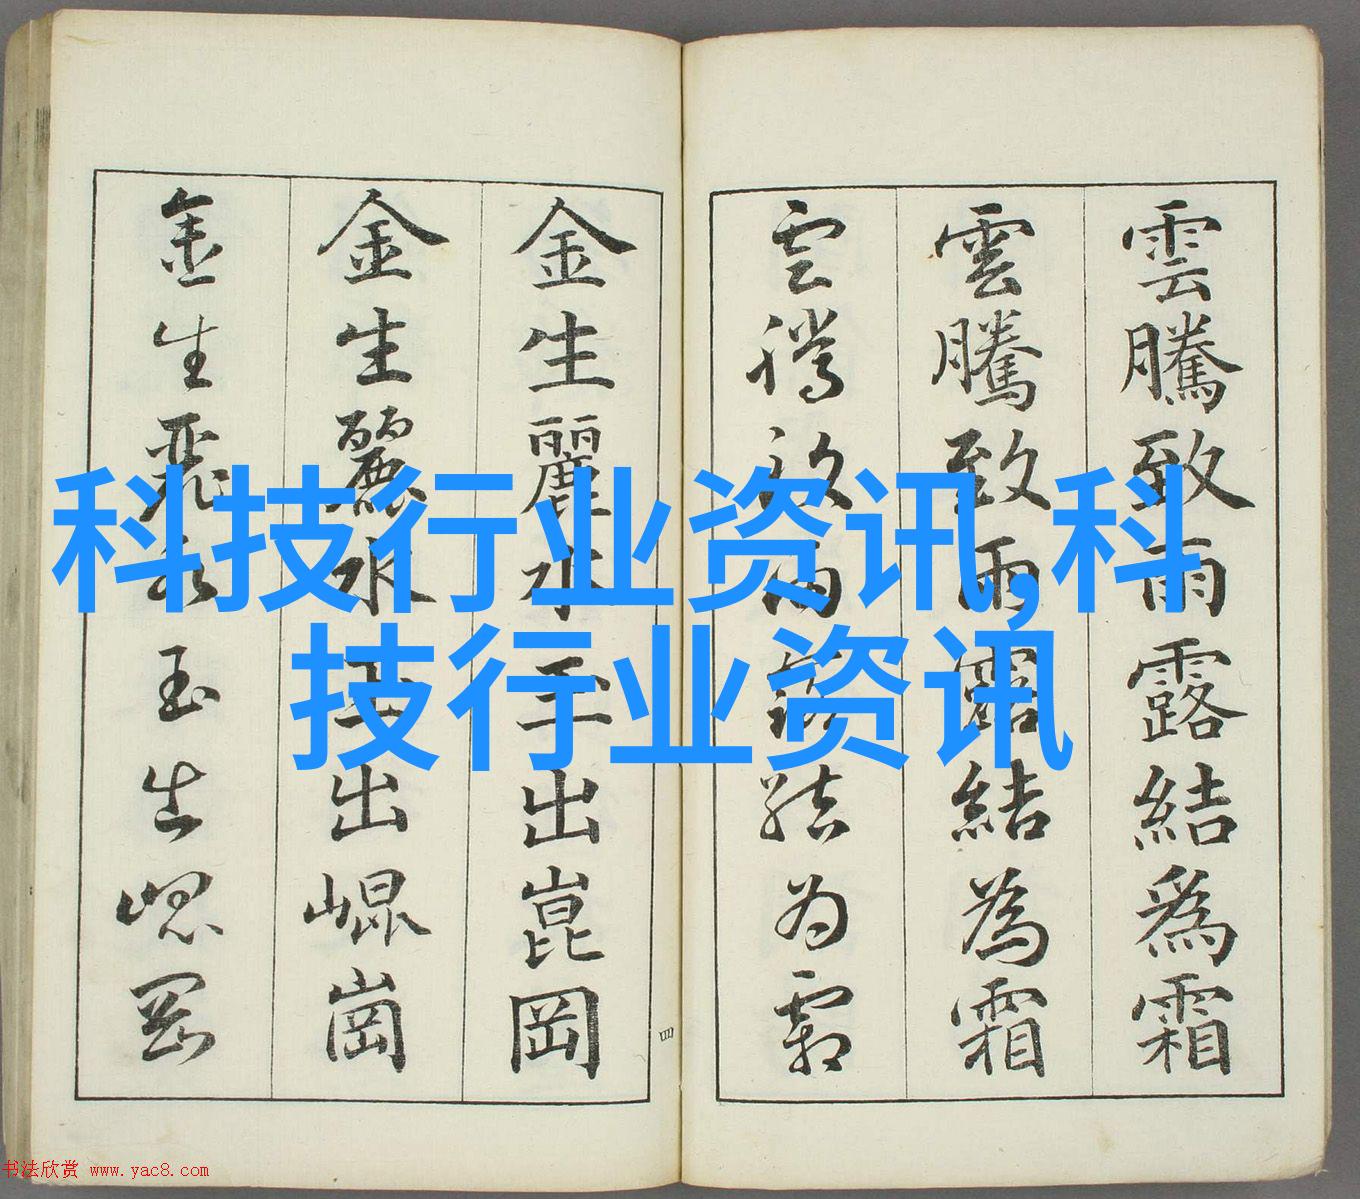 雲騰致雨露結為霜
雲騰致雨露結為霜
雲騰致雨露結為霜
金生麗水玉出崑岡
金生麗水玉出崐崗
金生麗水玉出崐岡
四
科技行业资讯,科
技行业资讯
书法欣赏 www.yac8.com